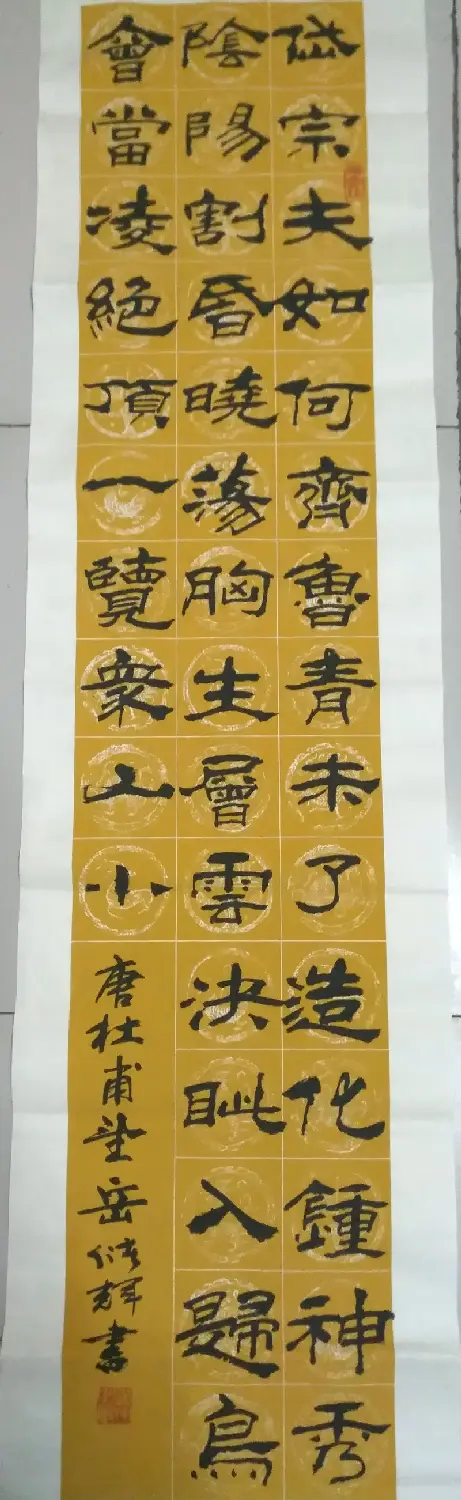 岱宗夫如何齊魯青未了造化鍾神秀
陰陽割昏曉蕩胸生層雲決眦入歸鳥
會當凌絕頂一覽衆山小
唐杜甫望岳 輝書